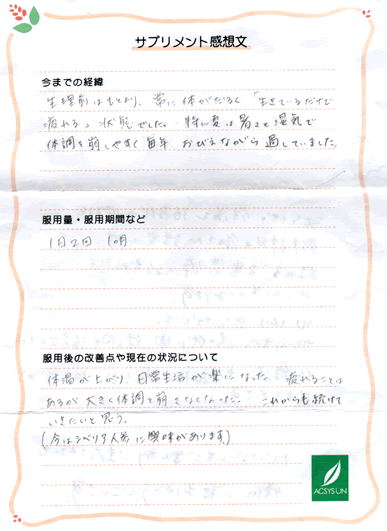 サプリメント感想文
今までの経緯
生理前はもとより、常に体がだるく「生きているだけで
疲れる」状態でした。特に夏は暑さと湿気で
体調を崩しやすく毎年 おびえながら過していました。
服用量・服用期間など
1日2回
服用後の改善点や現在の状況について
体温が上がり 日常生活が楽になった。 疲れることは
あるが大きく体調を崩さなくなった。 これからも続けて
いきたいと思う。
(今はシベリア人参に興味があります)
ACSYSUN